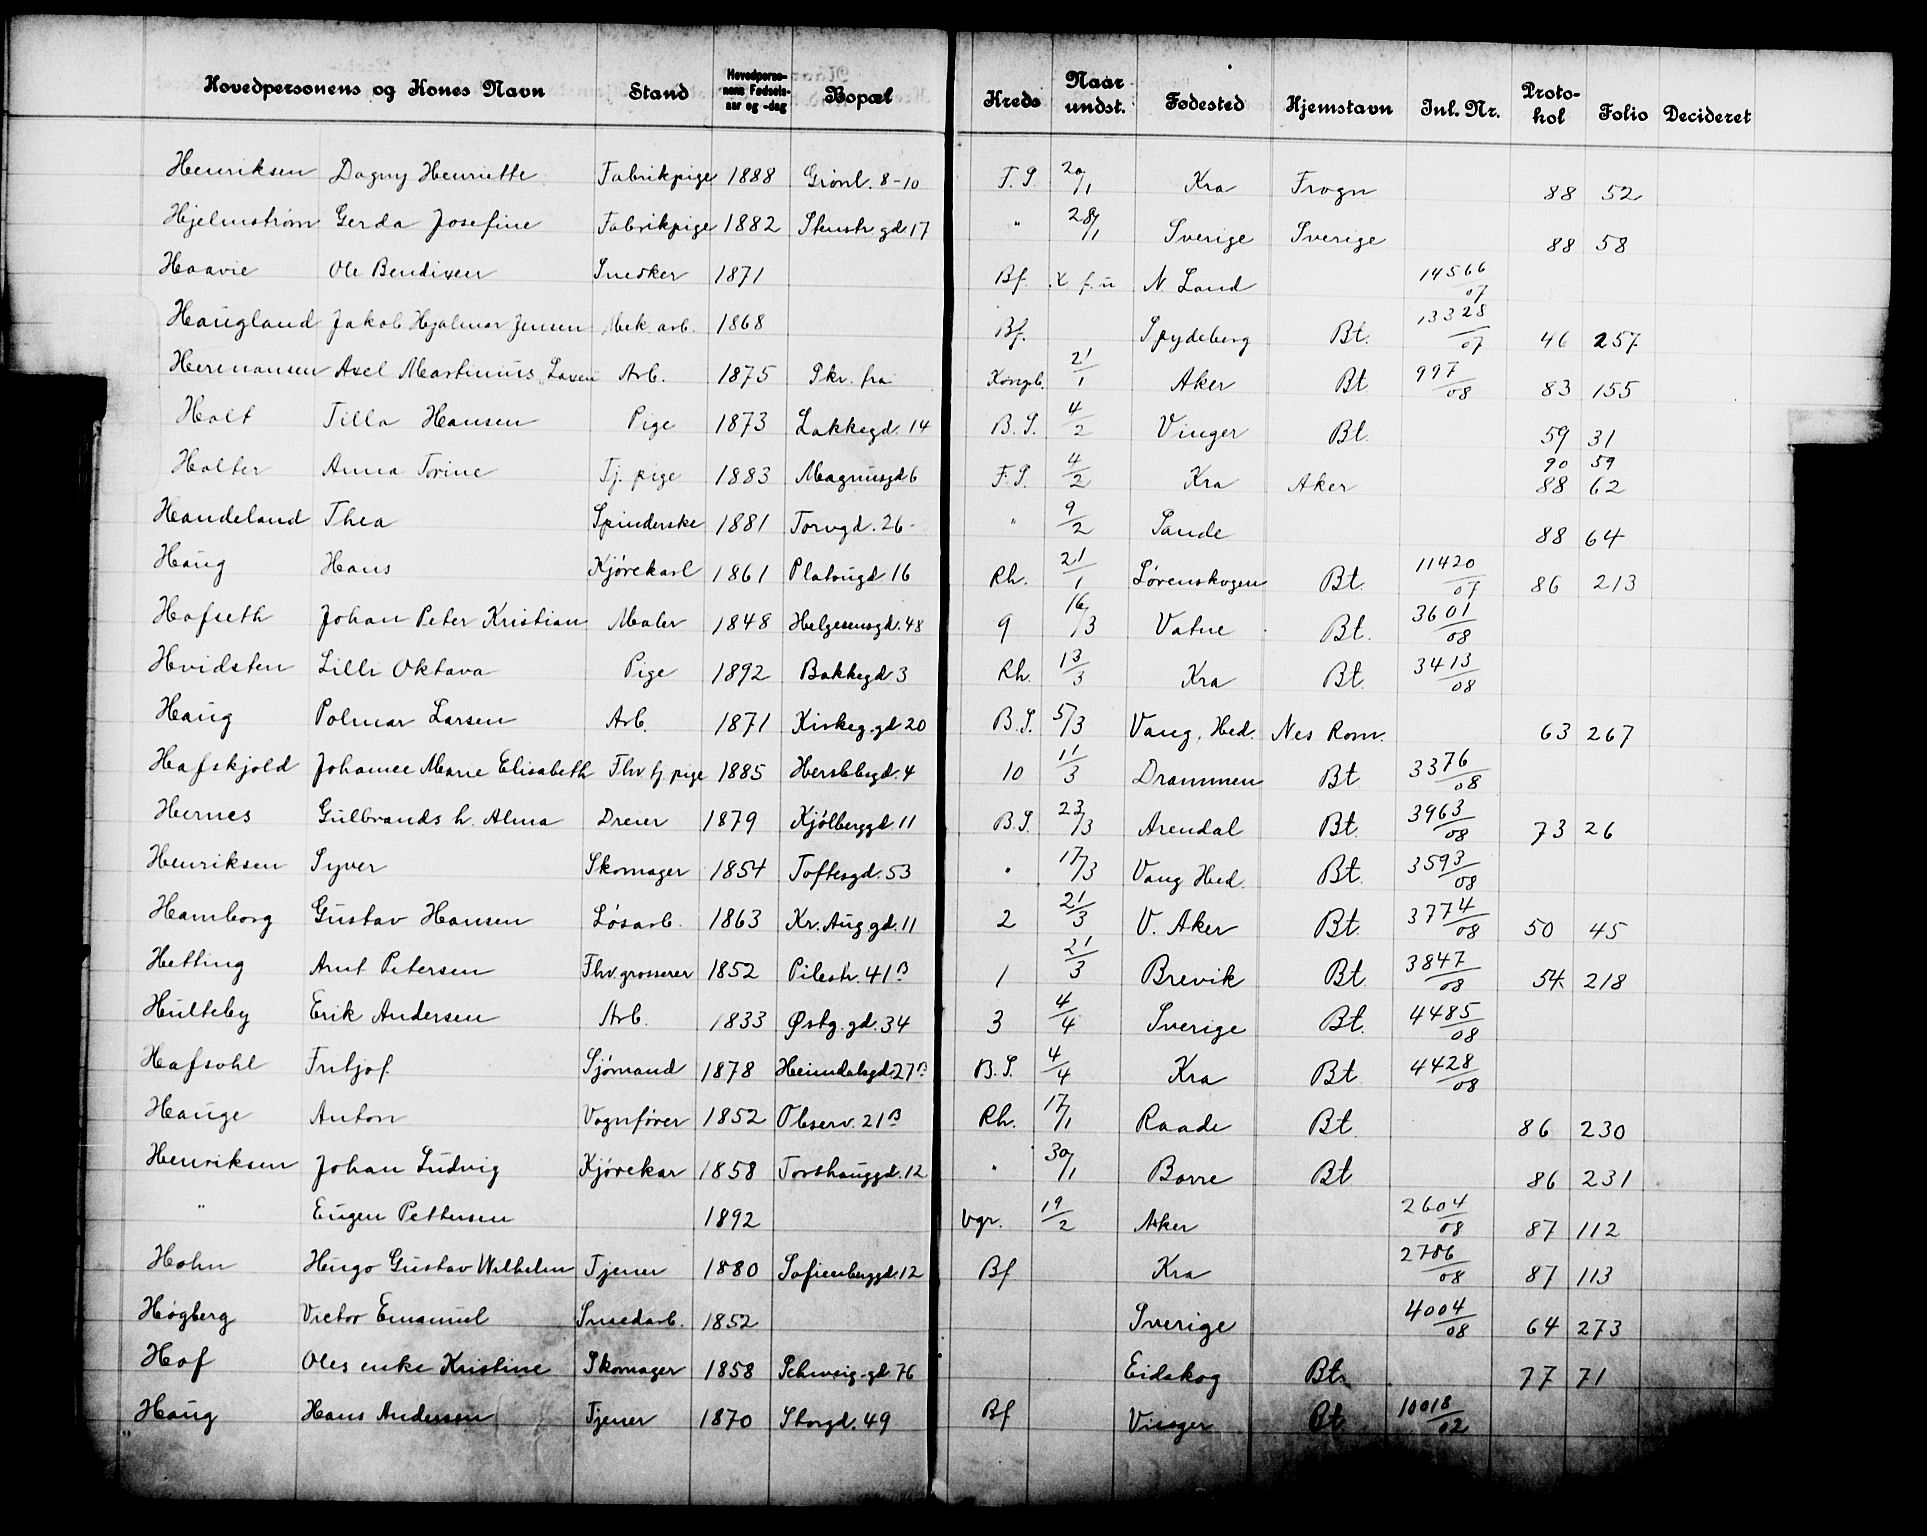 Hovedpersonens og Kones Navn | Stand | Hovedpersonens Fødselsaar og -dag | Bopæl | Kreds | Naar undst. | Fødested | Hjemstavn | Inl. Nr. | Protokol | Folio | Decideret
Henriksen Dagny Henriette Fabrikpige 1888 Grønl. 8-10 F. S. 20/1 Kra Frogn 88 52
Hjelmstrøm Gerda Josefine Fabrikpige 1882 Stenstr gd 17 " 28/1 Sverige Sverige 88 58
Haavie Ole Bendixen Snedker 1871 Bf. N. Land 14566/07
Haugland Jakob Hjalmar Jensen Mek. arb. 1868 Bf. Spydeberg Bt. 13328/07 46 257
Hermansen Axel Martinius Arb. 1875 Skr. fra Kongsb. 21/1 Aker Bt 997/08 83 155
Holt Tilla Hansen Pige 1873 Lakkegd. 14 B. S. 4/2 Vinger Bt. 59 31
Holter Anna Torine Tj. pige 1883 Magnusgd 6 F. S. 4/2 Kra Aker 90 59 88 62
Handeland Thea Spinderske 1881 Torvgd. 26 " 9/2 Sande 88 64
Haug Hans Kjørekarl 1861 Platougd 16 Rh. 21/1 Lørenskogen Bt. 11420/07 86 213
Hafseth Johan Peter Kristian Maler 1848 Helgesensgd. 48 9 16/3 Vatne Bt. 3601/08
Hvidsten Lilli Oktava Pige 1892 Bakkegd 3 Rh. 13/3 Kra Bt. 3413/08
Haug Polmar Larsen Arb. 1871 Kirkeg.gd 20 B. S. 5/3 Vang, Hed. Nes Rom. 63 267
Hafskjold Johanne Marie Elisabeth Fhv tj pige 1885 Herslebgd. 4 10 1/3 Drammen Bt 3376/08
Hernes Gulbrands h. Alma Dreier 1879 Kjølberggd 11 B. S. 23/3 Arendal Bt. 3963/08 73 26
Henriksen Syver Skomager 1854 Toftesgd. 53 " 17/3 Vang Hed. Bt. 3593/08
Hamborg Gustav Hansen Løsarb. 1863 Kr. Aug. gd. 11 2 21/3 V. Aker Bt. 3774/08 50 45
Hetting Arnt Petersen Fhv. grosserer 1852 Pilestr. 41 B 1 21/3 Brevik Bt. 3847/08 54 218
Hulteby Erik Andersen Arb. 1833 Østg. gd. 34 3 4/4 Sverige Bt. 4485/08
Hafsohl Fritjof Sjømand 1878 Heimdalsgd 27 B B. S. 4/4 Kra Bt 4428/08
Hauge Anton Vognfører 1852 Observ. 21 B Rh. 17/1 Raade Bt. 86 230
Henriksen Johan Ludvig Kjørekar 1858 Torshauggd. 12 " 30/1 Borre Bt 86 231
" Eugen Pettersen 1892 Vgr. 19/2 Aker 2604/08 87 112
Hohn Hugo Gustav Wilhelm Tjener 1880 Sofienberggd. 12 Bf Kra 2786/08 87 113
Høgberg Victor Emanuel Snedarb. 1852 Sverige 4004/08 64 273
Hof Oles enke Kristine Skomager 1858 Schweig.gd 76 Eidskog Bt. 77 71
Haug Hans Andersen Tjener 1870 Storgd. 49 Bf Vinger Bt 10018/02